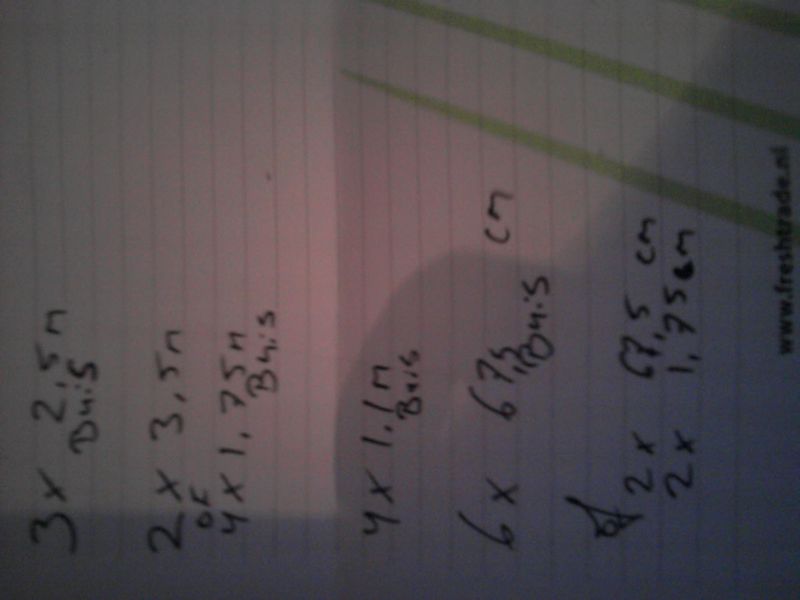 3 x 2,5m
Buis
2 x 3,5m
OF
4 x 1,75m
Buis
4 x 1,1m
Buis
6 x 67,5 cm
Buis
of 2 x 67,5 cm
2 x 1,75m
www.freshtrade.nl